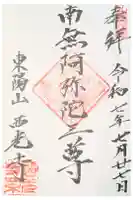 奉拝
令和七年七月廿七日
南無阿弥陀三尊
東陽山
西光寺